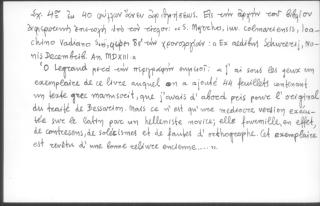 Σχ. 4ον ἐκ 40 φύλλων ἄνευ ἀριθμήσεως. Εἰς τὴν ἀρχὴν τοῦ βιβλίου
ἐπιστολὴ ὑπὸ τὸν τίτλον: «S. Myrchos, iur. colmariensis, Ioa-
chino Vadiano φέρει δὲ τὴν χρονολογίαν: «Ex aedibus Schurerij, No-
nis Decembrib. An. MDXIII.»
Ὁ Legrand μετὰ τὴν περιγραφὴν σημειοῖ: «j'ai sous les yeux un
exemplaire de ce livre auquel on a ajouté 44 feuillets contenant
un texte grec manuscrit, que j'avais d'abord pris pour l'original
du traité de Bessarion. Mais ce n'est qu'une médiocre version exécu-
tée sur le latin par un helléniste novice; elle fourmille, en effet,
de contresens, de solécismes et de fautes d'orthographe. Cet exemplaire
est revêtu d'une bonne reliure ancienne.....».